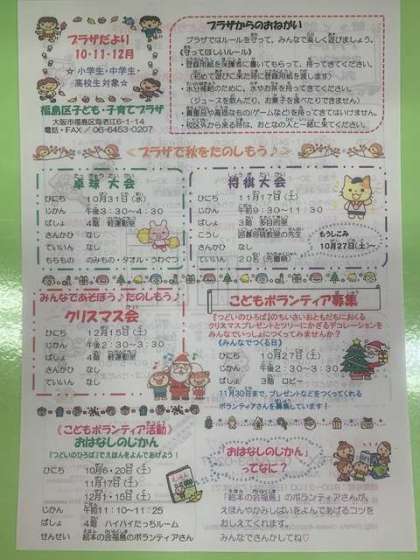 プラザだより
10・11・12月
☆小学生・中学生・
高校生対象☆
福島区子ども・子育てプラザ
大阪市福島区海老江6-1-14
電話・FAX / 06-6453-0207
プラザからのおねがい
プラザではルールを守って、みんなで楽しく遊びましょう。
《守ってほしいルール》
・登録用紙を保護者に書いてもらって、持ってきてください。
(初めて遊びに来た時に登録用紙を渡します)
・水分補給のために、水やお茶を持ってきてください。
(ジュースを飲んだり、お菓子を食べたりできません)
・貴重品や高価なもの(ゲームなど)を持ってきてはいけません。
・校区外から来る時は、おとなの人と一緒に来てください。
<プラザで秋をたのしもう♪>
卓球大会
ひにち 10月31日(水)
じかん 午後3:30~4:30
ばしょ 4階 軽運動室
さんかひ なし
ていいん なし
もちもの のみもの・タオル・うわぐつ
将棋大会
ひにち 11月17日(土)
じかん 午前9:30~11:30
ばしょ 3階 多目的室
さんかひ なし
こうし
ていいん 20名(先着順)
もうしこみ
10月27日(土)~
みんなであそぼう♪たのしもう♪
クリスマス会
ひにち 12月15日(土)
じかん 午後2:30~3:30
ばしょ 4階 軽運動室
さんかひ なし
ていいん なし
こどもボランティア募集
『つどいのひろば』のちいさいおともだちにおくる
クリスマスプレゼントとツリーにかざるデコレーションを
みんなでいっしょにつくってみませんか?
《みんなでつくる日》
ひにち 10月27日(土)
じかん 午後2:30~3:30
ばしょ 3階 ロビー
11月30日まで、プレゼントなどをつくってくれる
ボランティアさんを募集しています!
《こどもボランティア活動》
おはなしのじかん
『つどいのひろば』でえほんをよんであげよう!
ひにち 10月6・20日(土)
11月
12月1・15日(土)
じかん 午前11:10~11:25
ばしょ 4階 ハイハイたっちルーム
せんせい 『絵本の会福島』のボランティアさん
「おはなしのじかん」
ってなに?
『絵本の会福島』のボランティアさんが、
えほんやかみしばいをよんであげるコツを
おしえてくれます。
みんなでさんかしてね♡